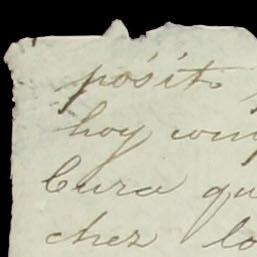 pósito
hoy com
Cura qu
chez lo